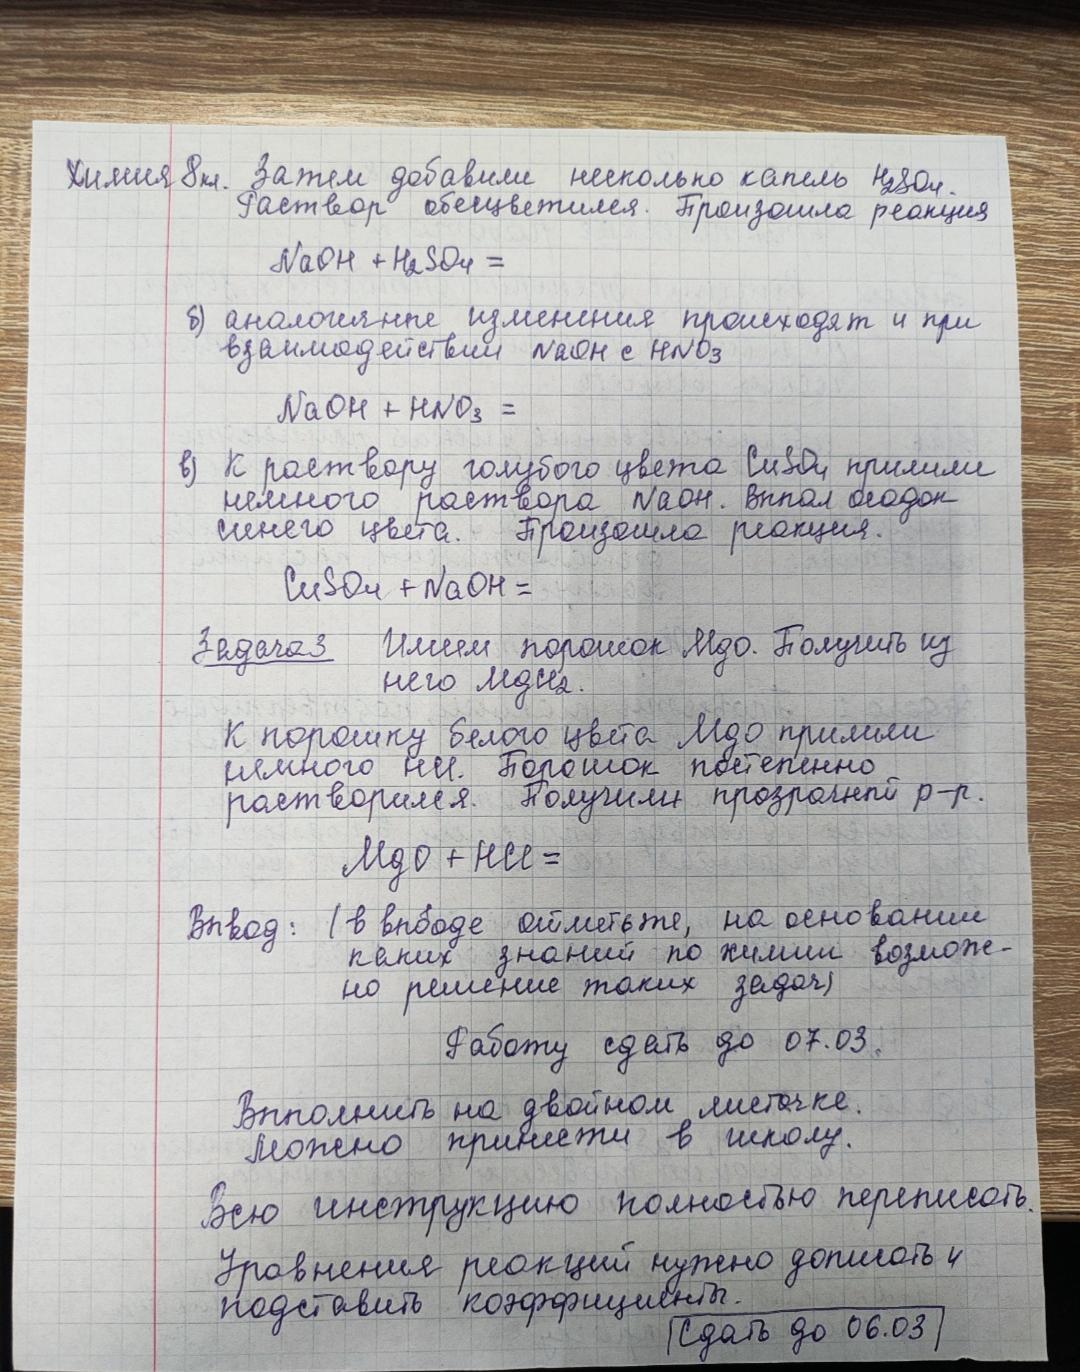 Химия 8кл. Затем добавили несколько капель H₂SO₄.
Раствор обесцветился. Произошла реакция
NaOH + H₂SO₄ =
б) аналогичные изменения происходят и при
взаимодействии NaOH с HNO₃
NaOH + HNO₃ =
в) К раствору голубого цвета CuSO₄ прилили
немного раствора NaOH. Выпал осадок
синего цвета. Произошла реакция.
CuSO₄ + NaOH =
Задача 3 Имеем порошок MgO. Получить из
него MgCl₂.
К порошку белого цвета MgO прилили
немного HCl. Порошок постепенно
растворился. Получили прозрачный р-р.
MgO + HCl =
Вывод: (в выводе отметьте, на основании
каких знаний по химии возмож-
но решение таких задач)
Работу сдать до 07.03.
Выполнить на двойном листочке.
Можно принести в школу.
Всю инструкцию полностью переписать.
Уравнения реакций нужно дописать и
подставить коэффициенты.
Сдать до 06.03